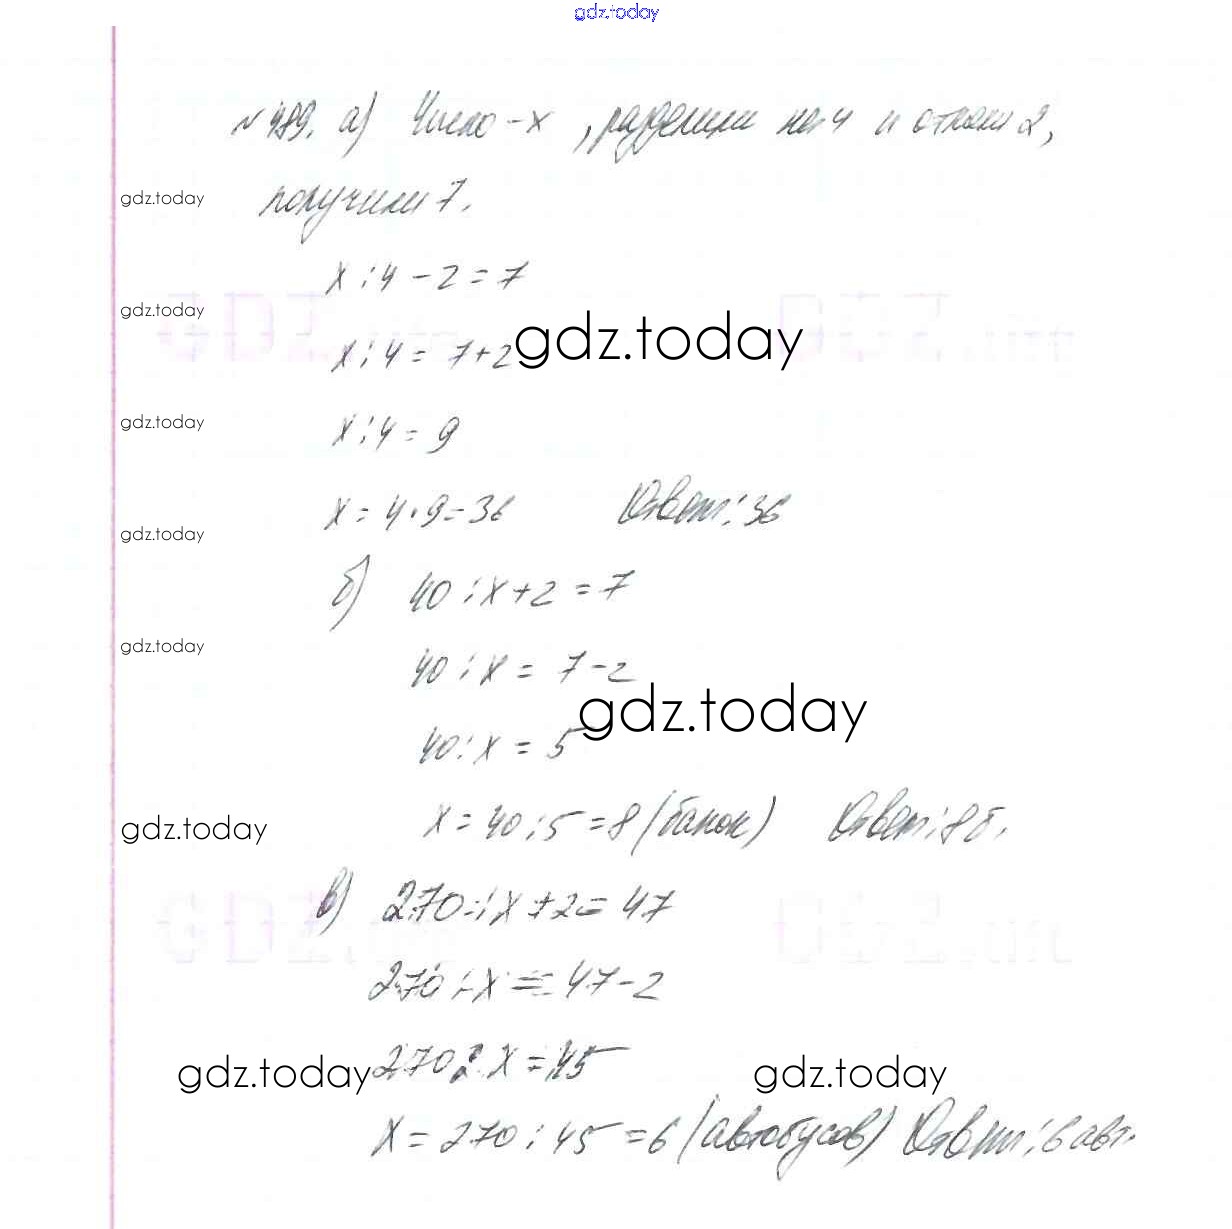 gdz.today
№ 489. а) Число - х , разделили на 4 и отняли 2,
gdz.today
получили 7.
х : 4 - 2 = 7
gdz.today
х : 4 = 7 + 2
gdz.today
gdz.today
х : 4 = 9
х = 4 · 9 = 36 Ответ: 36
gdz.today
б) 40 : х + 2 = 7
gdz.today
40 : х = 7 - 2
gdz.today
40 : х = 5
gdz.today
х = 40 : 5 = 8 (банок) Ответ: 8 б.
в) 270 : х + 2 = 47
270 : х = 47 - 2
gdz.today
270 : х = 45
gdz.today
х = 270 : 45 = 6 (автобусов) Ответ: 6 авт.